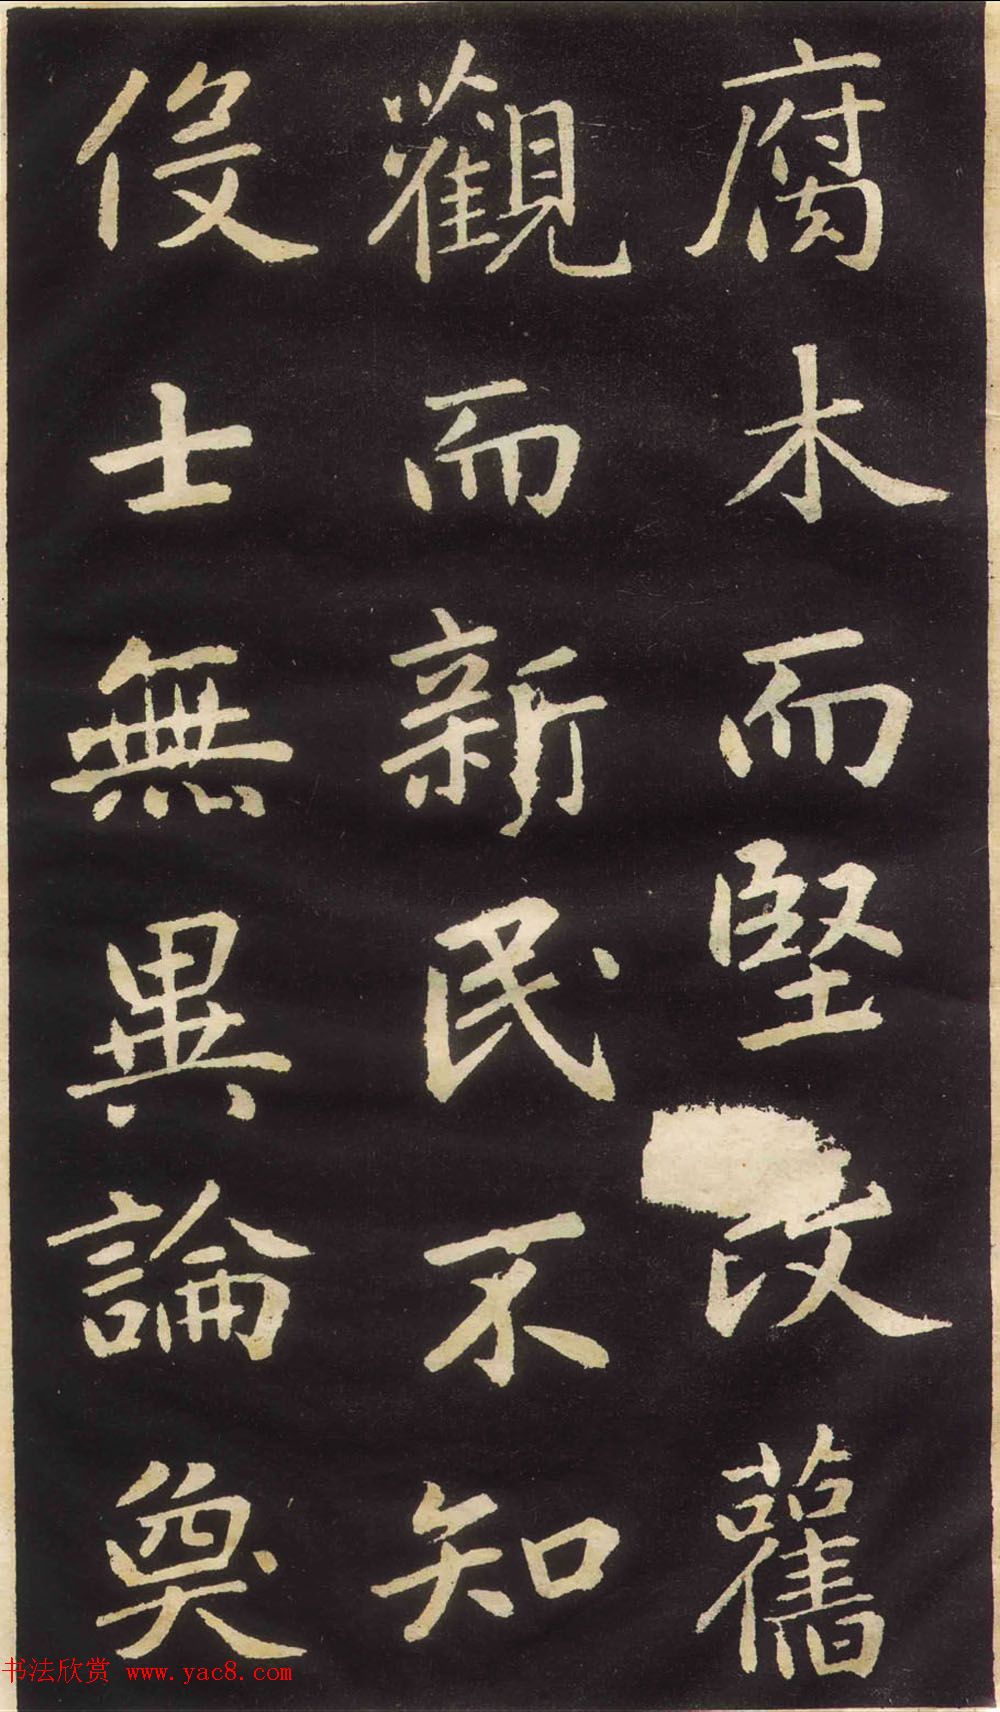 腐木而堅改舊
觀而新民不知
伇士無異論奐
书法欣赏 www.yac8.com